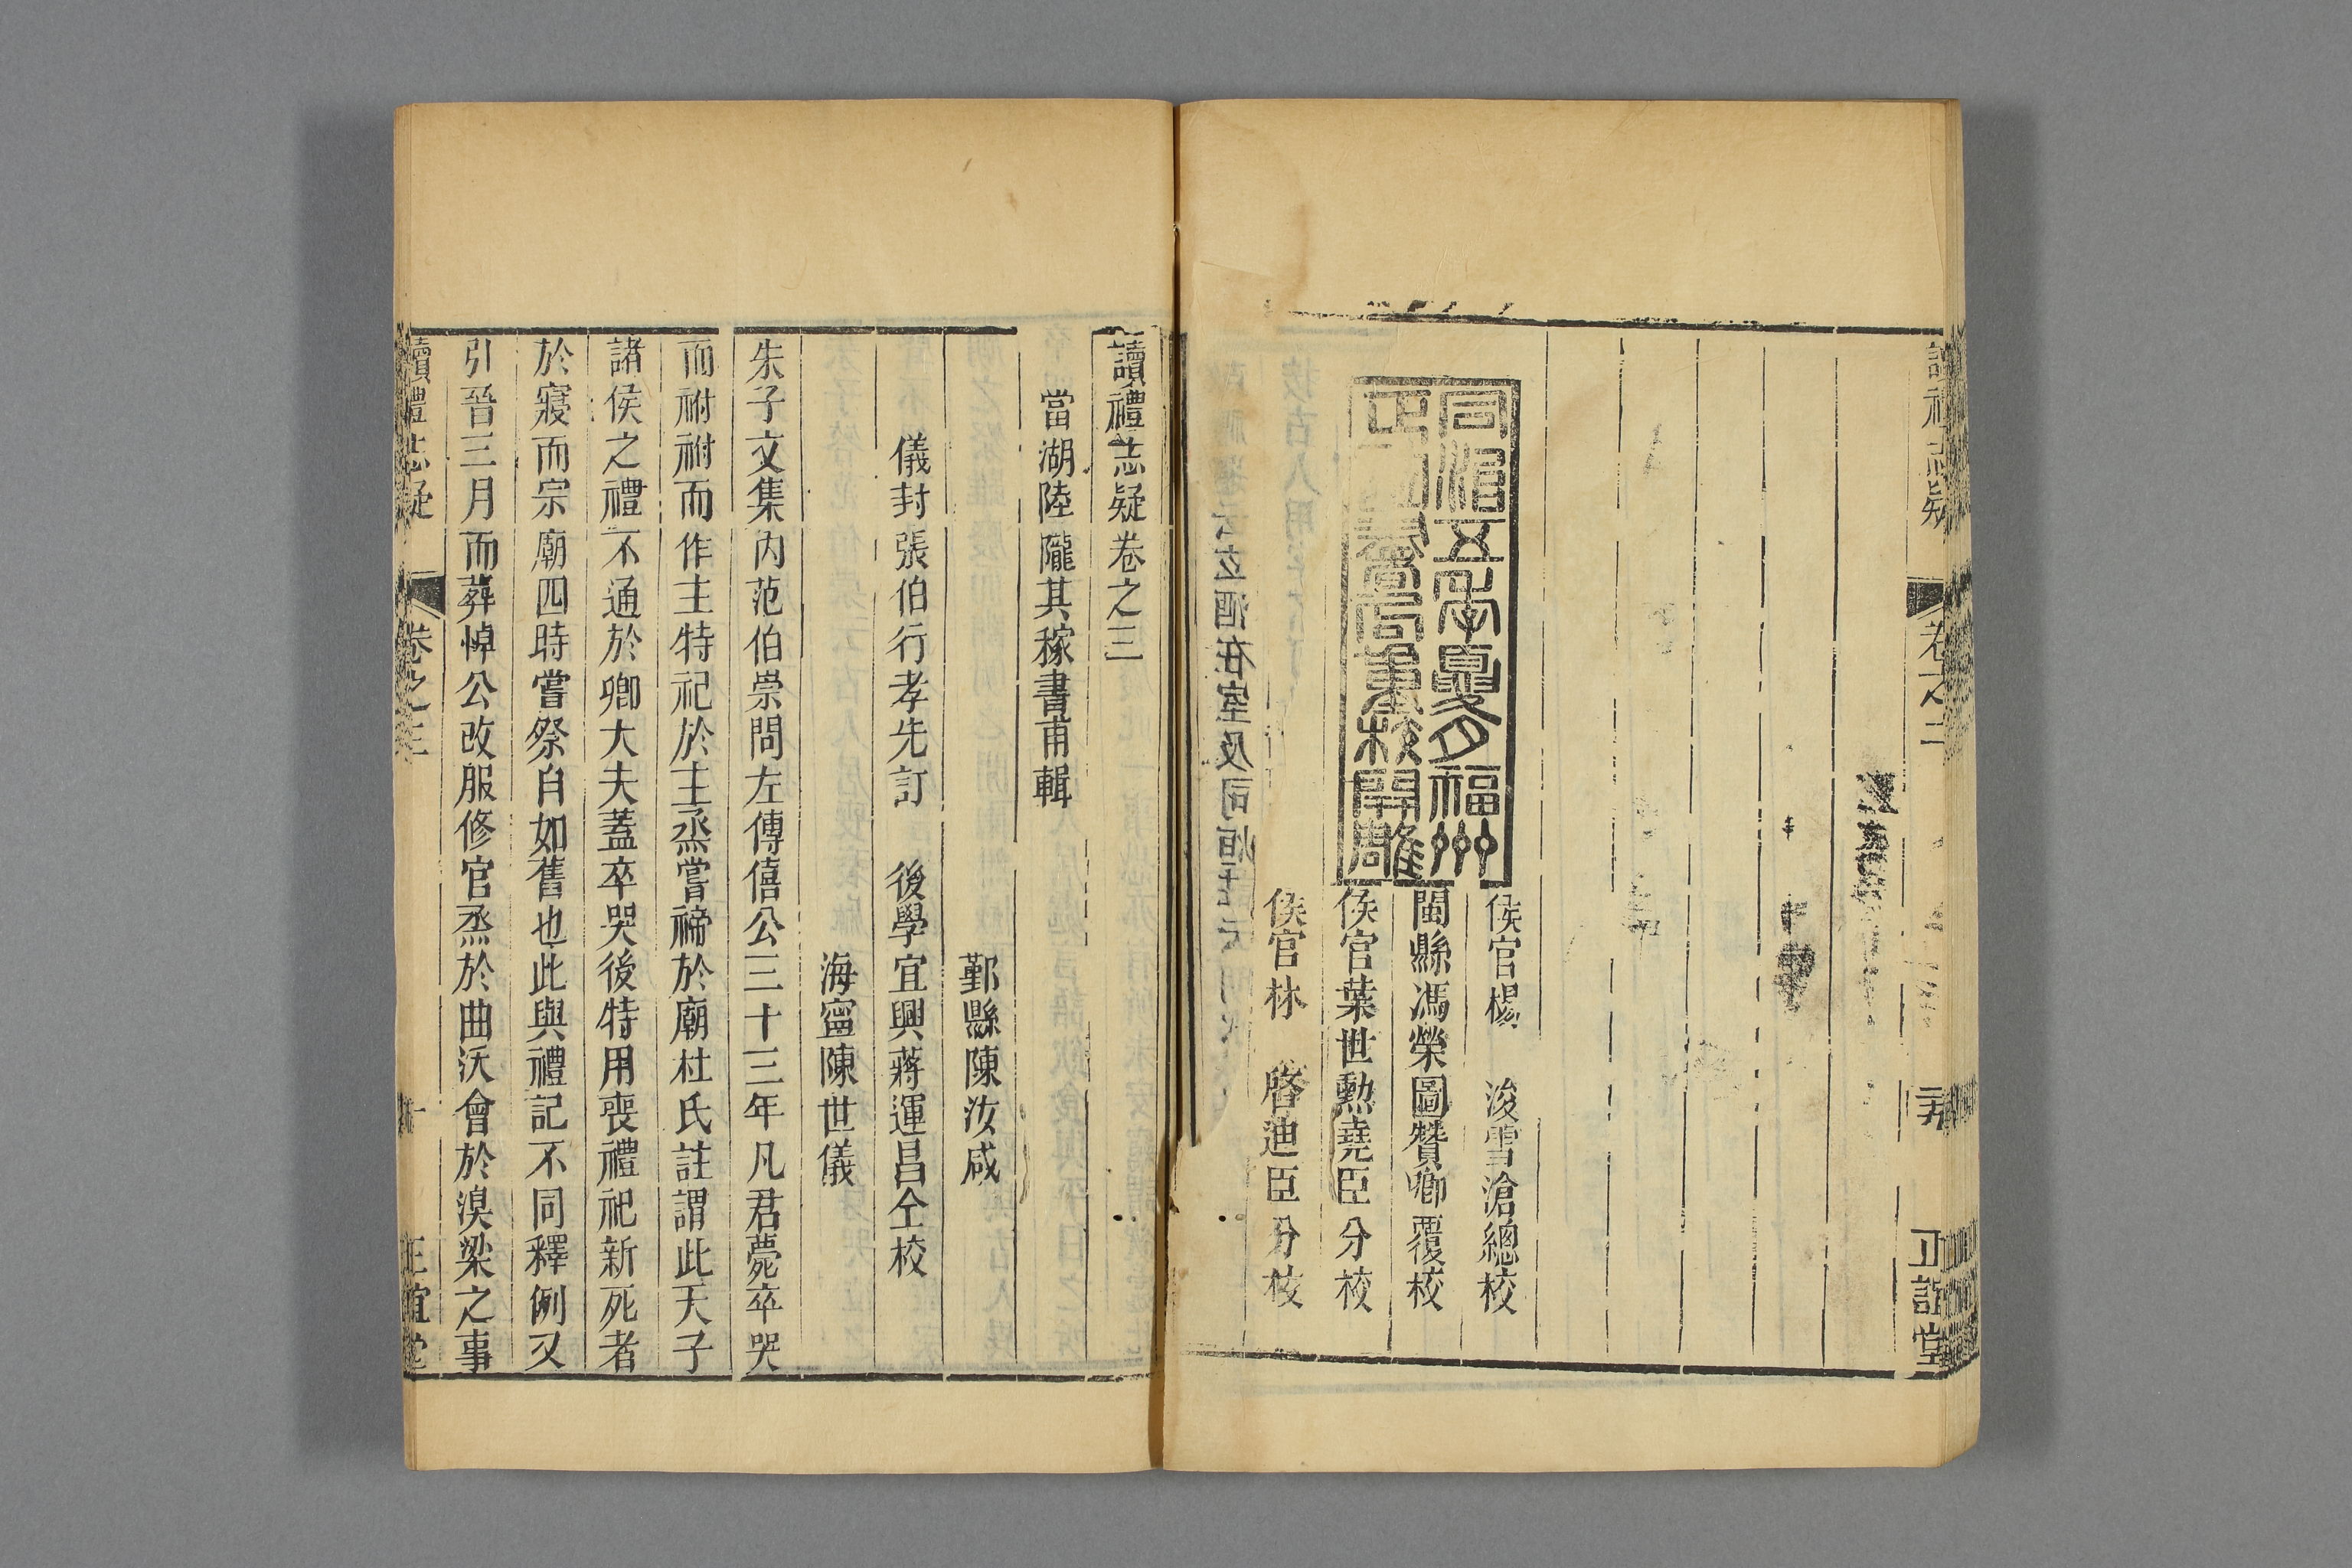 讀禮志疑
卷之二
正誼堂
同治五年夏月福州
正誼書局重校開雕
侯官楊 浚雪滄總校
閩縣馮榮圖贊卿覆校
侯官葉世勲堯臣分校
侯官林 啓迪臣分校
讀禮志疑卷之三
當湖陸隴其稼書甫輯
鄞縣陳汝咸
儀封張伯行孝先訂 後學宜興蔣運昌仝校
海寧陳世儀
朱子文集内范伯崇問左傳僖公三十三年凡君薨卒哭
而祔祔而作主特祀於主烝嘗禘於廟杜氏註謂此天子
諸侯之禮不通於卿大夫蓋卒哭後特用喪禮祀新死者
於寢而宗廟四時嘗祭自如舊也此與禮記不同釋例又
引晉三月而葬悼公改服修官烝於曲沃會於溴梁之事
讀禮志疑
卷之三
一
正誼堂